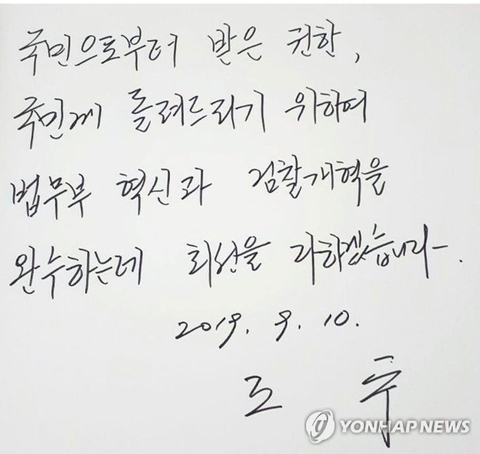 국민으로부터 받은 권한,
국민께 돌려드리기 위하여
법무부 혁신과 검찰개혁을
완수하는데 최선을 다하겠습니다.
2019. 9. 10.
조 국
YONHAP NEWS